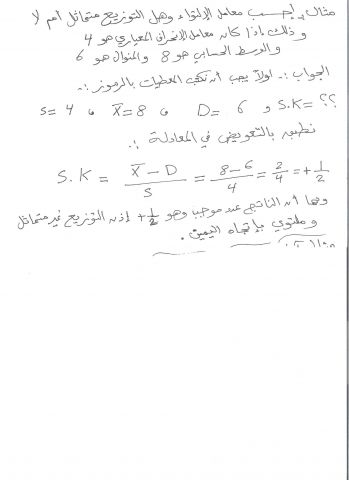 مثال: إحسب معامل الإلتواء وهل التوزيع متماثل أم لا
وذلك إذا كانه معامل الإنحراف المعياري هو 4
والوسط الحسابي هو 8 والمنوال هو 6
الجواب :. أولاً يجب أن نكتب المعطيات بالرموز :.
S=4 ، X̄=8 ، D=6 و S.K=؟؟
نطبقه بالتعويض في المعادلة :.
S.K = (X̄ – D)/S = (8–6)/4 = 2/4 = +1/2
وبما أن الناتج عدد موجب وهو +1/2 إذن التوزيع غير متماثل
وملتوي بإتجاه اليمين.